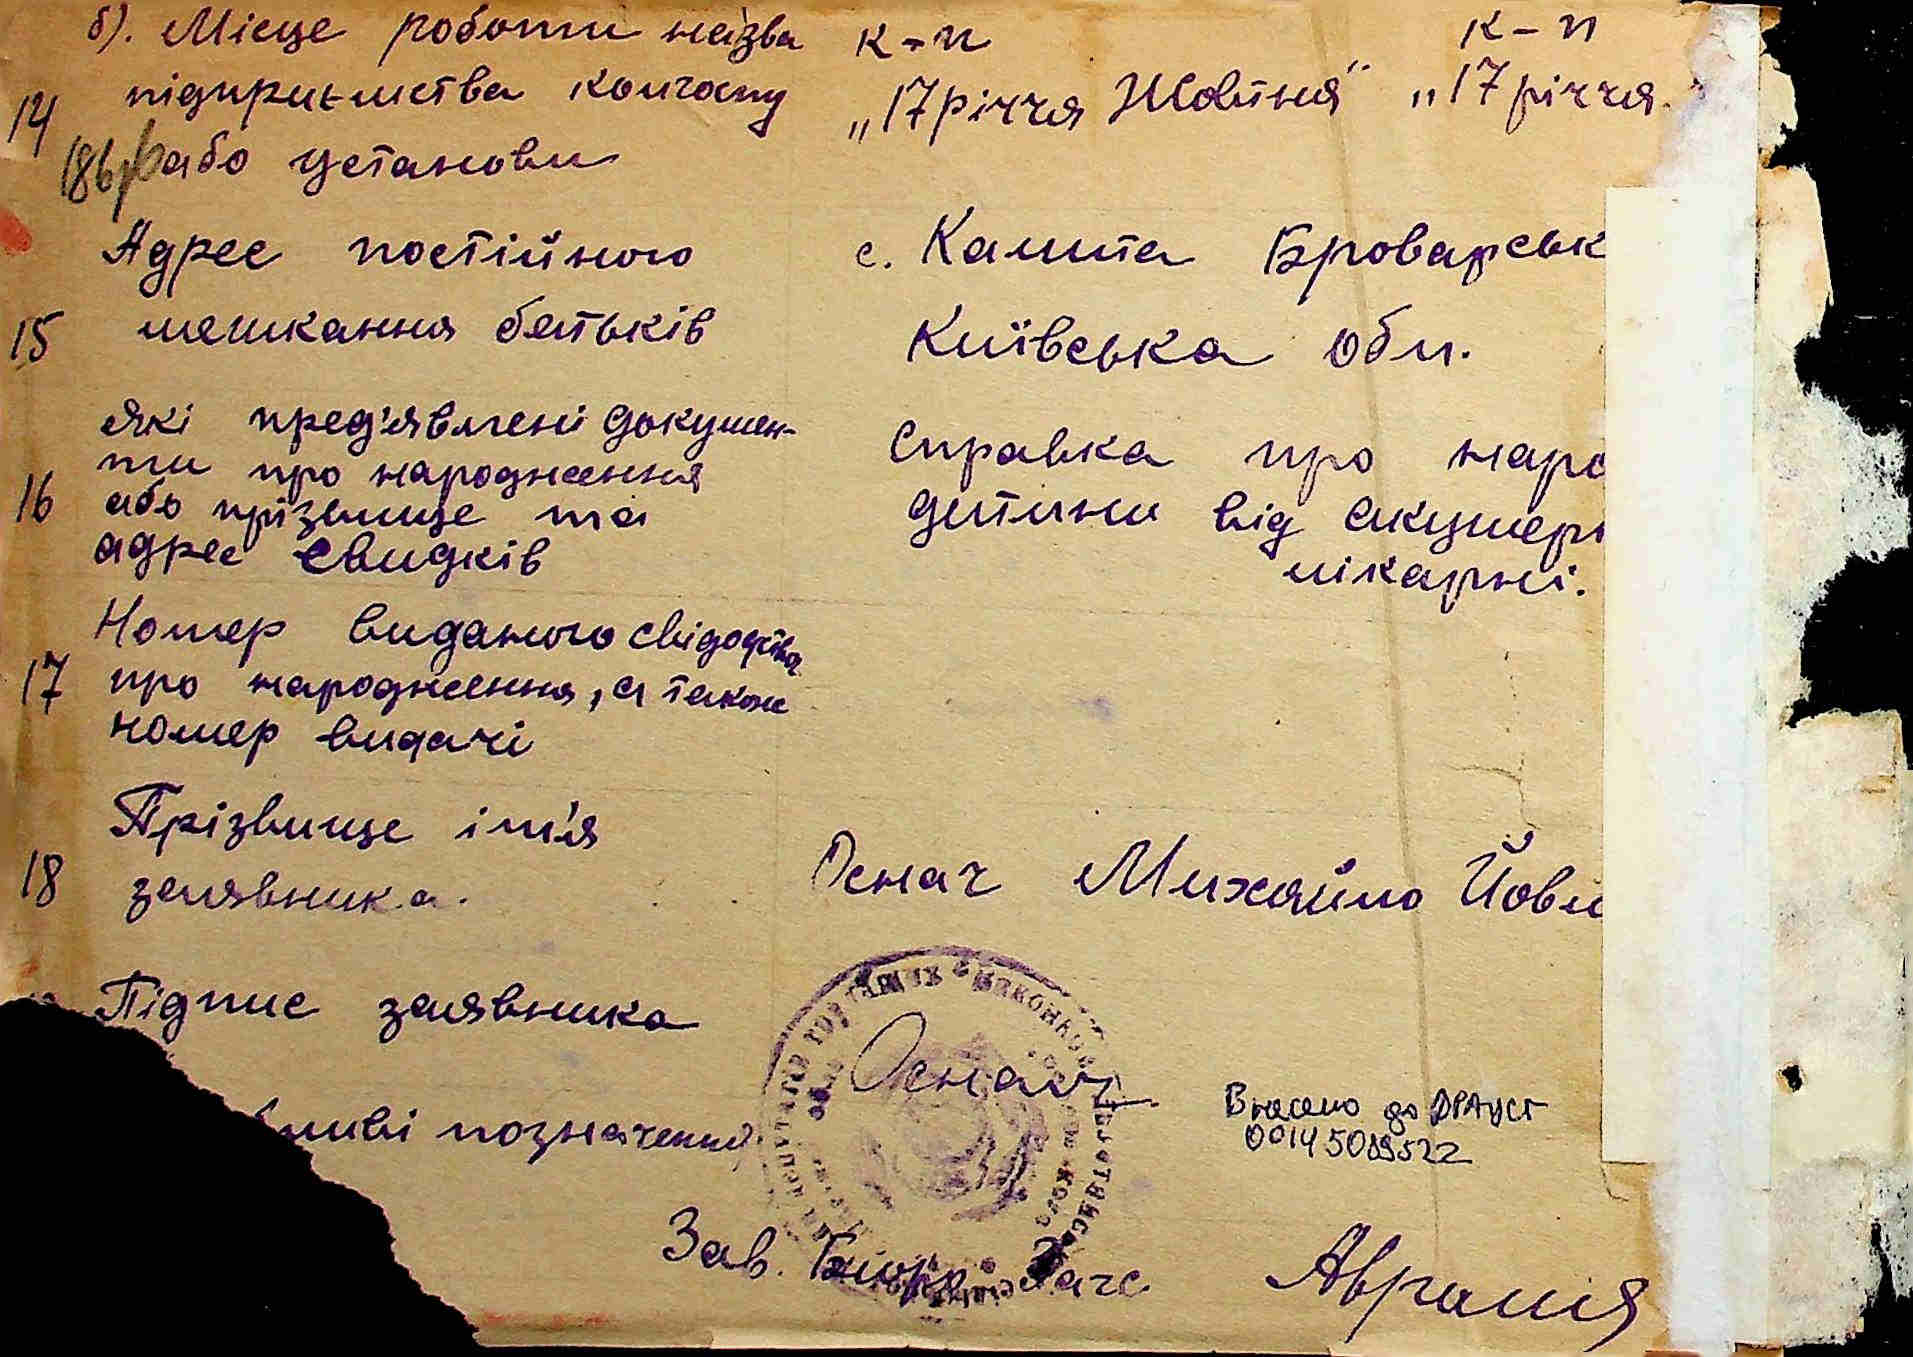 б). Місце роботи назва к-п к-п
14 підприємства колгоспу „17 річчя Жовтня" „17 річчя
186 р або установи
Адрес постійного с. Калита Броварськ
15 мешкання батьків Київська обл.
Які пред'явлені докумен-
ти про народження Справка про наро
16 або прізвище та дитини від акушер
адрес свидків лікарні.
Номер виданого свідоцтва
17 про народження, а також
номер видачі
Прізвище ім'я
18 заявника. Оснач Михайло Йови
Підпис заявника
Оснач
ливі позначення
Внесено до ДРАЦСГ
00145089522
Зав. Бюро Загс